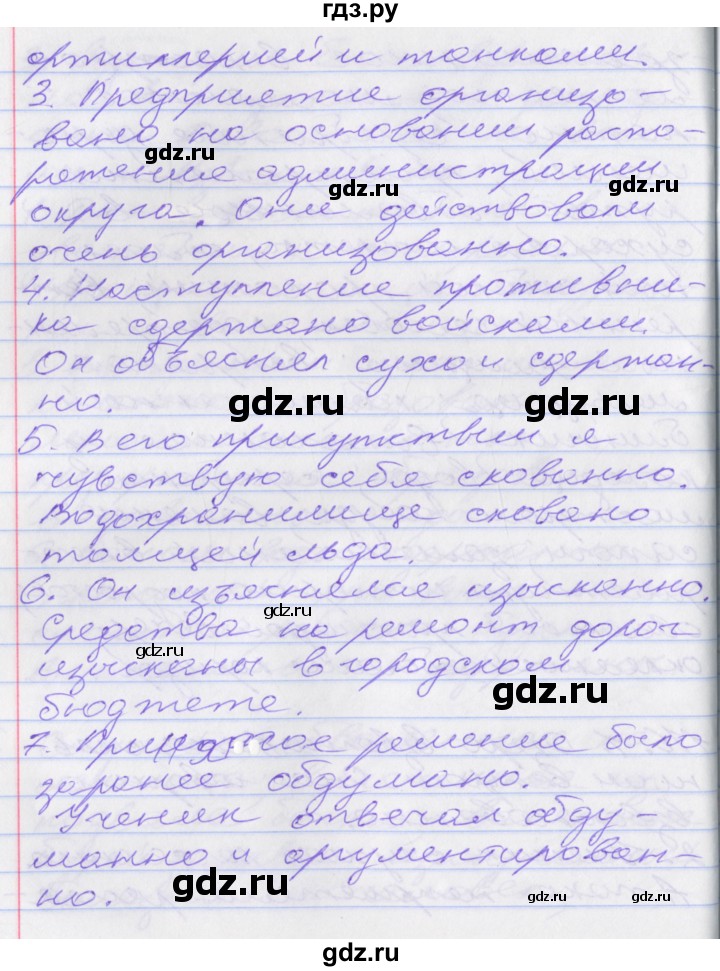 гдз.ру
артиллерией и танками.
3. Предприятие организо-
вано на основании распо-
ряжения администрации
округа. Они действовали
очень организованно.
4. Наступление противни-
ка сдержано войсками.
Он объяснял сухо и сдержан-
но.
5. В его присутствии я
чувствую себя скованно.
Водохранилище сковано
толщей льда.
6. Он изъяснялся изысканно.
Средства на ремонт дорог
изысканы в городском
бюджете.
7. решение было
заранее обдумано.
Ученик отвечал обду-
манно и аргументирован-
но.
gdz.ru
gdz.ru
gdz.ru
gdz.ru
gdz.ru
gdz.ru
gdz.ru
gdz.ru
gdz.ru
gdz.ru
gdz.ru
gdz.ru
gdz.ru
gdz.ru